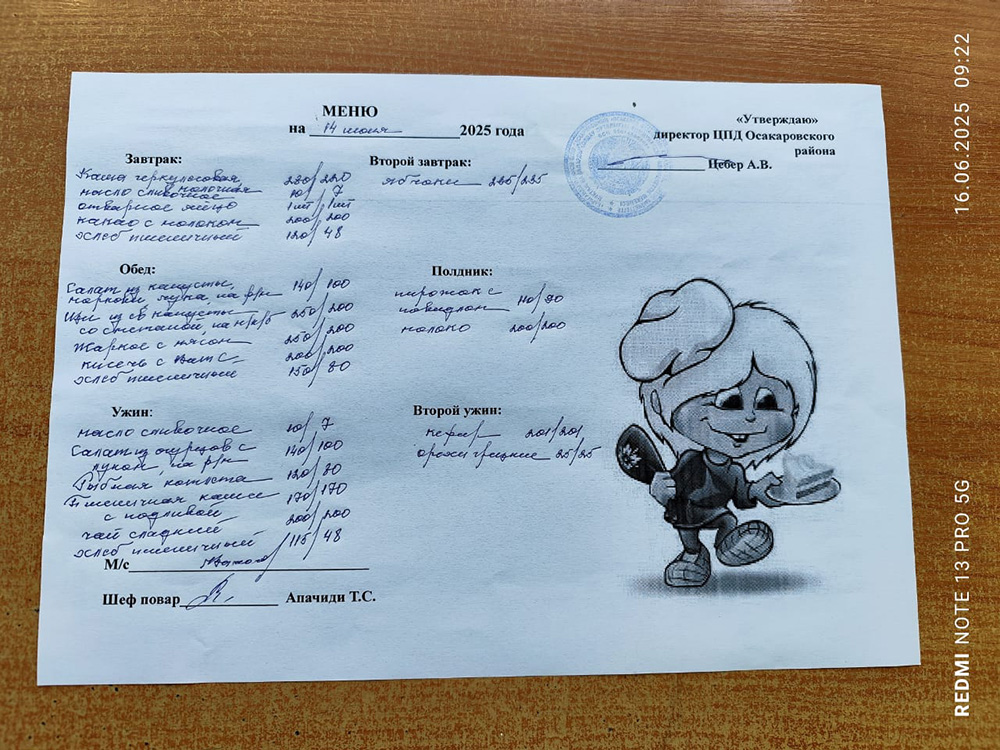 МЕНЮ
на 14 июня 2025 года
«Утверждаю»
директор ЦПД Осакаровского
района
Цебер А.В.
Завтрак:
Каша геркулесовая, 220/220
молочная
масло сливочное 10/7
отварное яйцо 1шт/1шт
какао с молоком 200/200
хлеб пшеничный 120/48
Второй завтрак:
яблоки 235/235
Обед:
Салат из капусты, 140/100
моркови лука, на р/м
Щи из св капусты 250/200
со сметаной, на м/к/б
Жаркое с мясом 250/200
кисель с Вит С 200/200
хлеб пшеничный 150/80
Полдник:
пирожок с
повидлом 110/90
молоко 200/200
Ужин:
масло сливочное 10/7
Салат из огурцов с 140/100
луком, на р/м
Рыбная котлета 120/80
Пшеничная каша 170/170
с подливой
чай сладкий 200/200
хлеб пшеничный 115/48
Второй ужин:
кефир 201/201
орехи грецкие 25/25
М/с
Шеф повар Апачиди Т.С.
REDMI NOTE 13 PRO 5G 16.06.2025 09:22